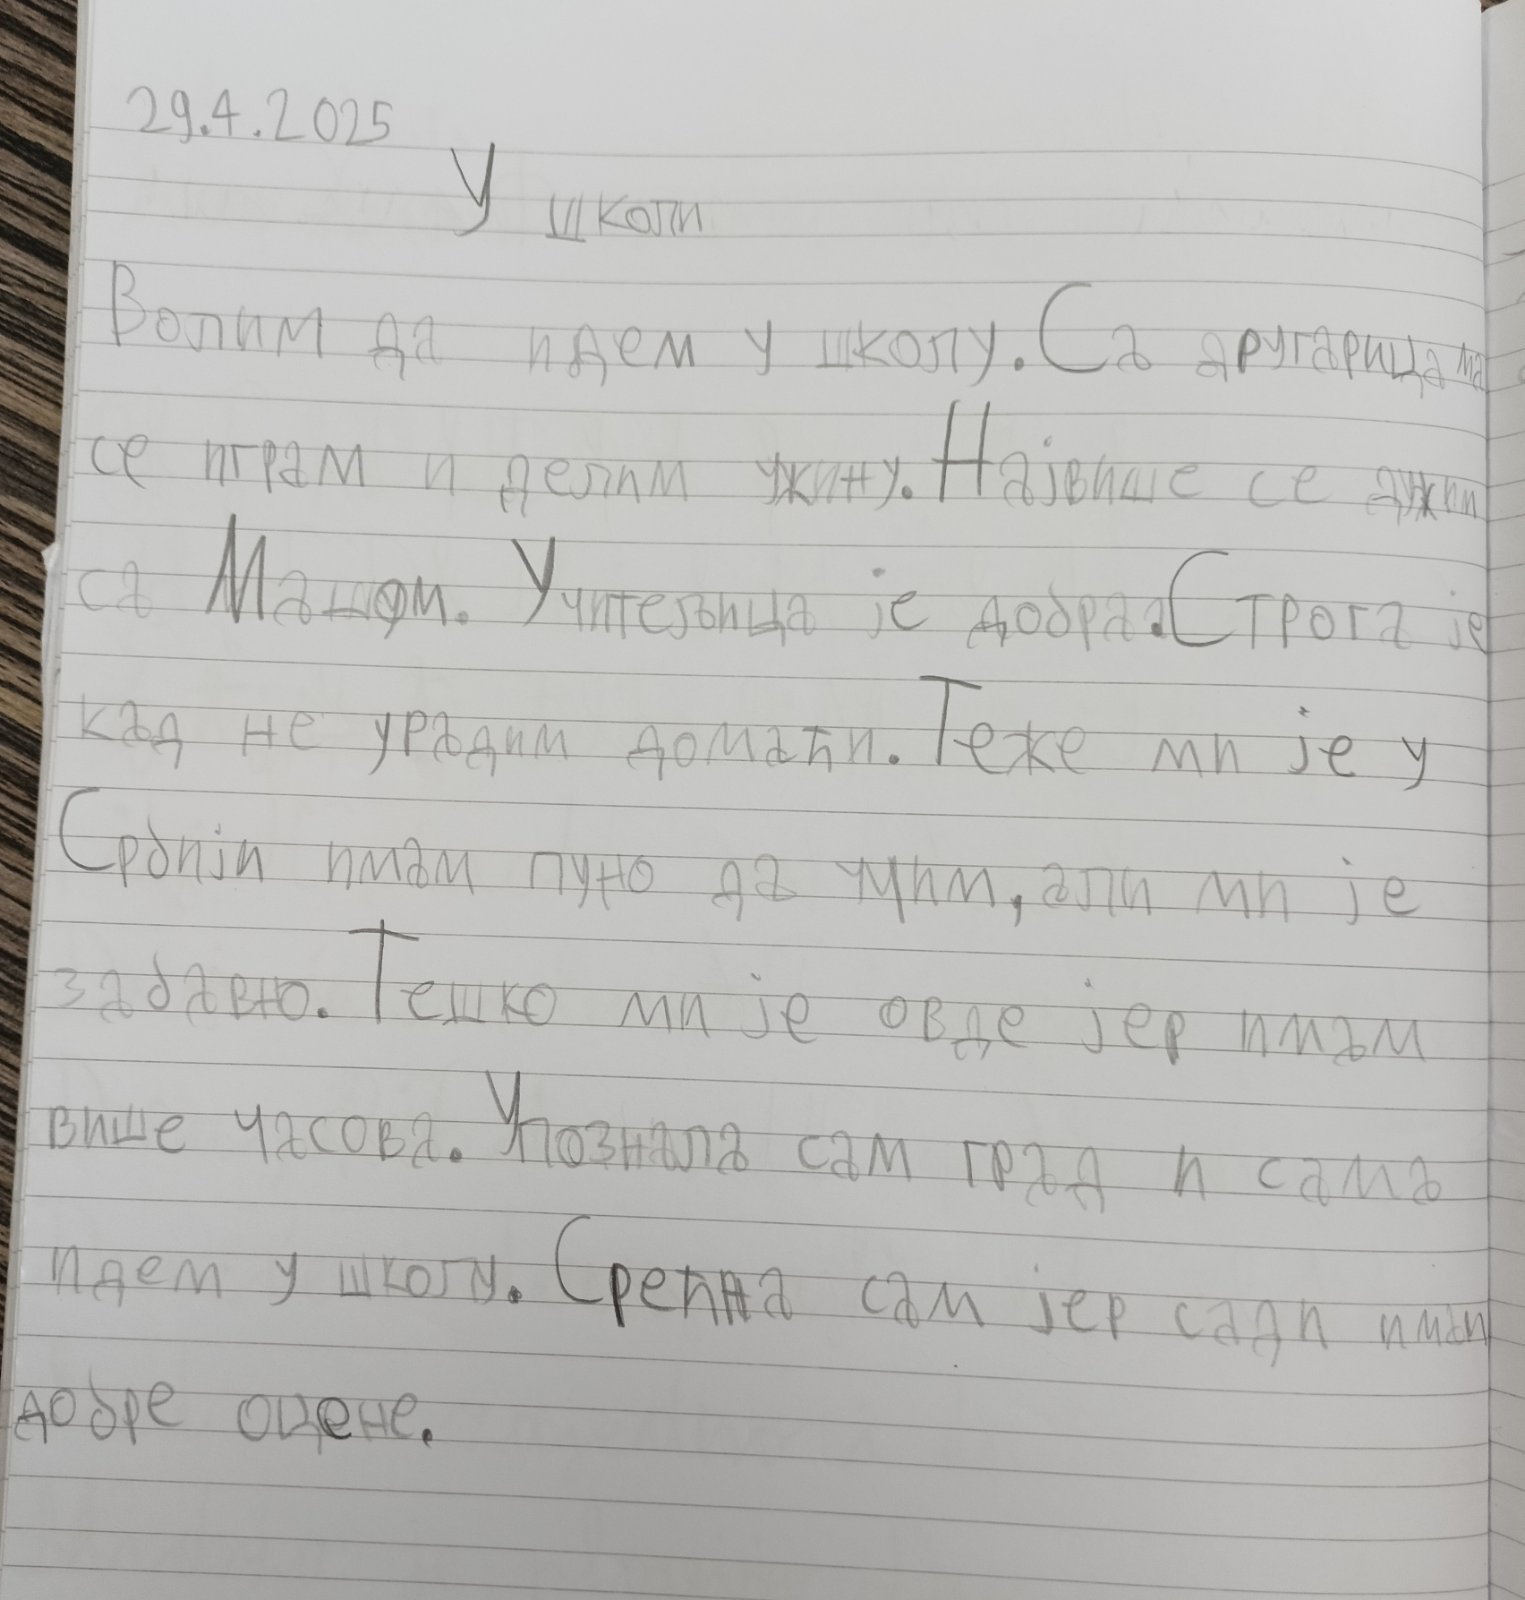 29.4.2025
У школи
Волим да идем у школу. Са другарицама
се играм и делим ужину. Највише се дужим
са Машом. Учитељица је добра. Строга је
кад не урадим домаћи. Теже ми је у
Србији имам пуно да учим, али ми је
забавно. Тешко ми је овде јер имам
више часова. Упознала сам град и сама
идем у школу. Срећна сам јер сади имам
добре оцене.